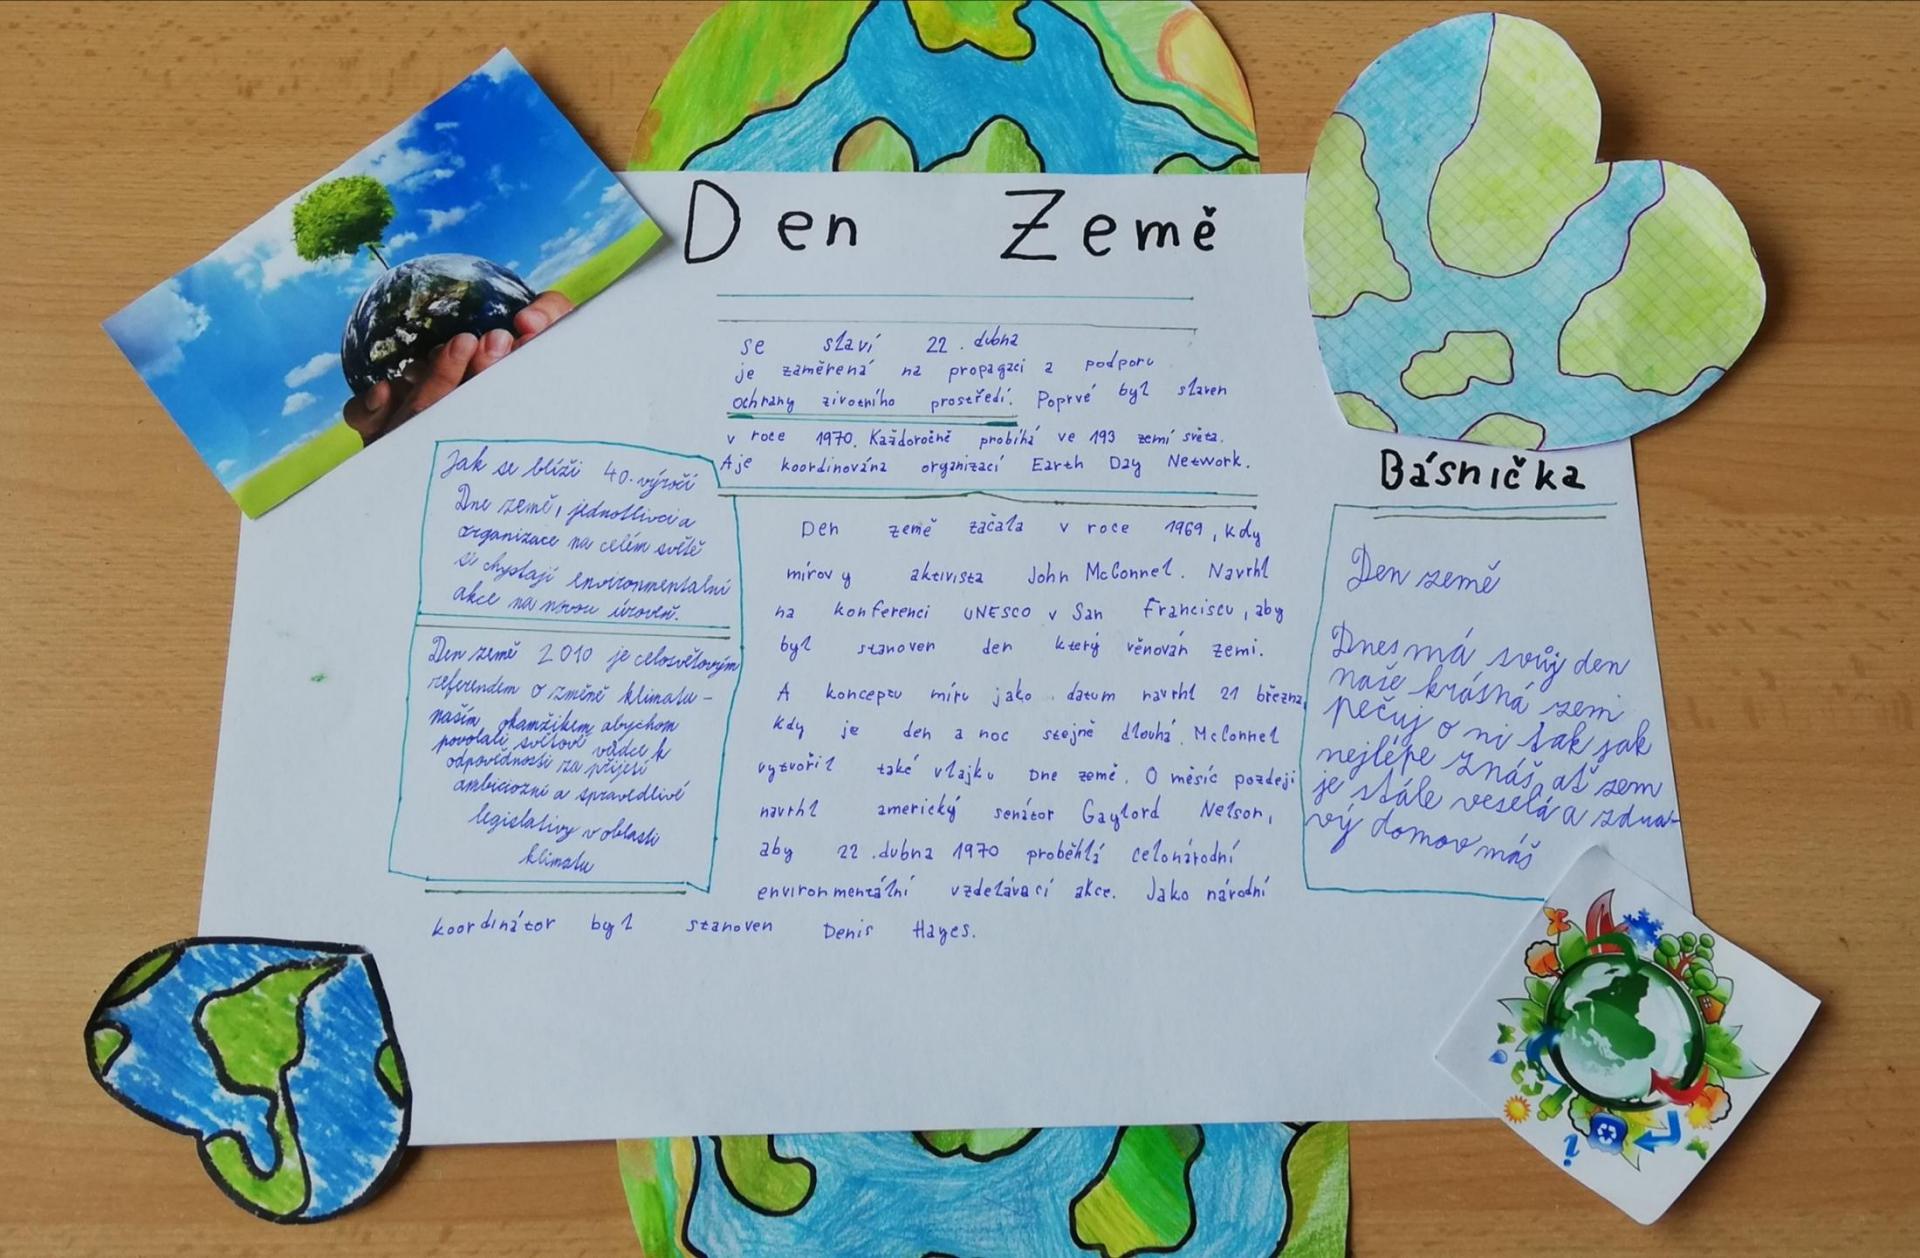 Den Země
se slaví 22. dubna
je zaměřená na propagaci a podporu
ochrany zivotního prostředí. Poprvé byl slaven
v roce 1970. Každoročně probíhá ve 193 zemí světa.
A je koordinována organizací Earth Day Network.
Jak se blíží 40. výročí
Dne země, jednotlivci a
organizace na celém světě
si chystají environmentalní
akce na novou úroveň.
Den země 2010 je celosvětovým
referendem o změně klimatu -
naším okamžikem abychom
povolali světové vůdce k
odpovědnosti za přijetí
ambiciozní a spravedlivé
legislativy v oblasti
klimatu
Den země začala v roce 1969, kdy
mírový aktivista John McConnel. Navrhl
na konferenci UNESCO v San Franciscu, aby
byl stanoven den který věnován zemi.
A konceptu míru jako datum navrhl 21 března,
kdy je den a noc stejně dlouhá. McConnel
vytvořil také vlajku Dne země. O měsíc pozdeji
navrhl americký senátor Gaylord Nelson,
aby 22. dubna 1970 proběhlá celonárodní
environmentální vzdelávací akce. Jako národní
koordinátor byl stanoven Denis Hayes.
Básnička
Den země
Dnes má svůj den
naše krásná zem
pečuj o ni tak jak
nejlépe znáš, ať zem
je stále veselá a zdra-
vý domov máš